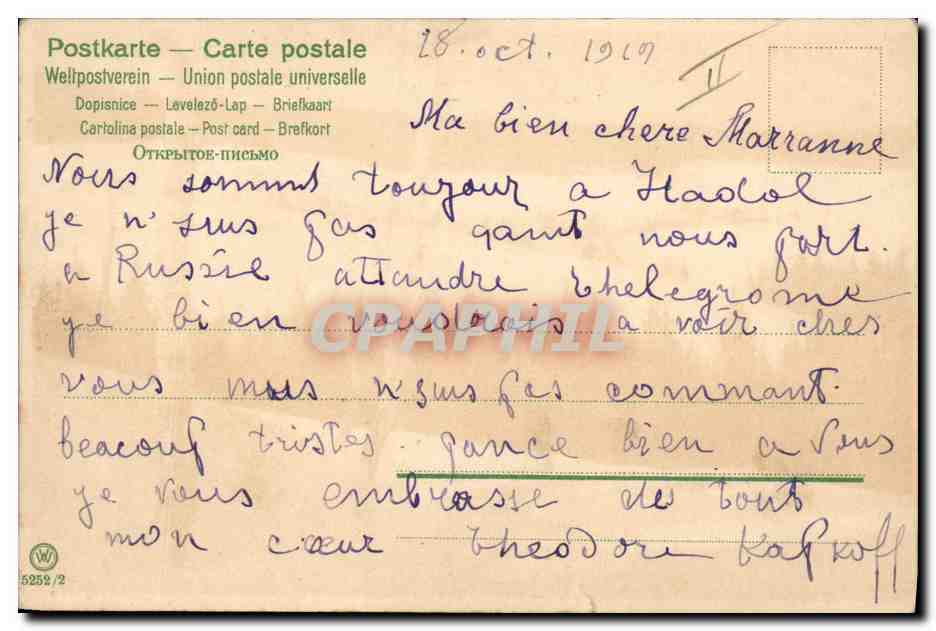 Postkarte — Carte postale
Weltpostverein — Union postale universelle
Dopisnice — Levelező-Lap — Briefkaart
Cartolina postale — Post card — Brefkort
Открытое-письмо
18. oct. 1919
II
Ma bien chere Marranne
Nous sommus toujour a Hadol
je n'suis pas qant nous part.
a Russie attandre thelegrome
CPAPHIL
ye bien voudrais a voir ches
vous mais n'suis pas commant.
beacoup tristes. pance bien a vous
je vous embrasse de tout
mon cœur Theodore Kapkoff
W
5252/2